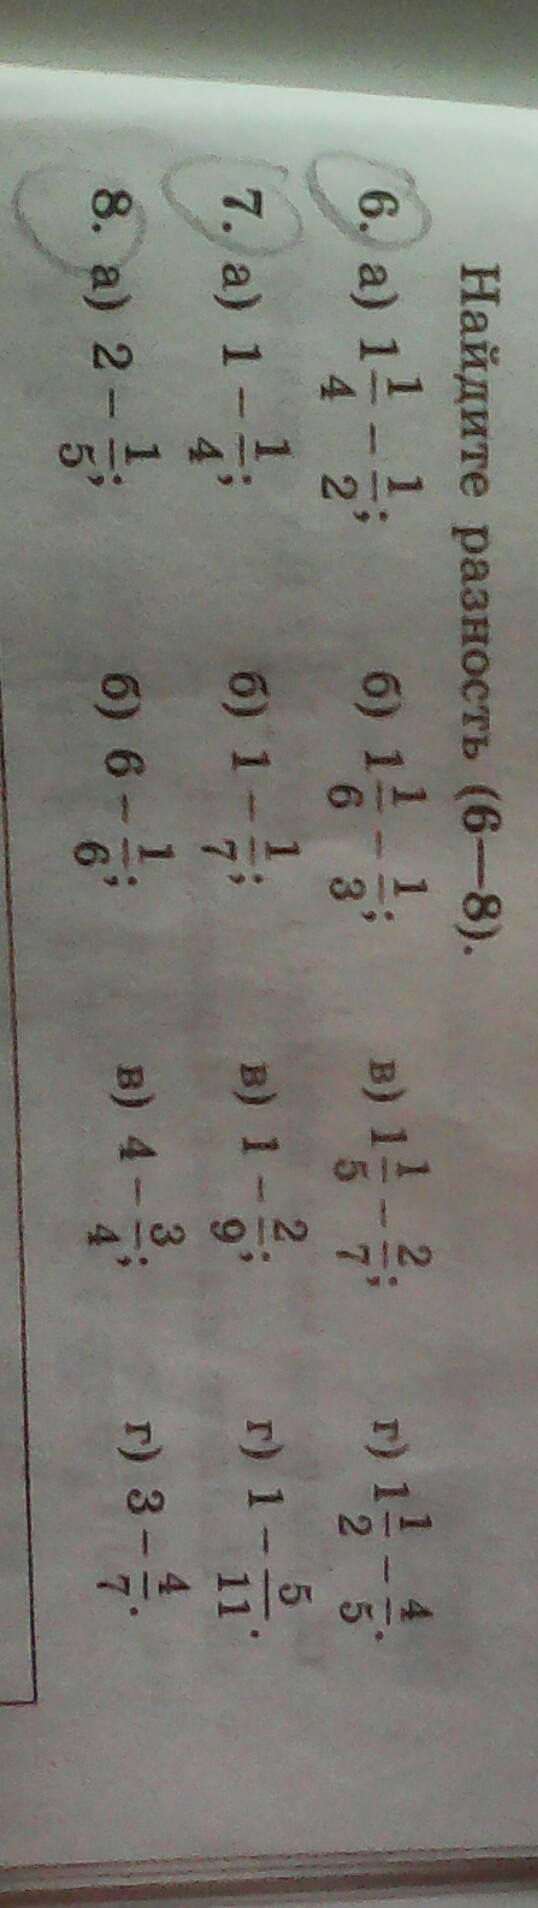 Найдите разность (6—8).
6. а) 1 1/4 − 1/2; б) 1 1/6 − 1/3; в) 1 1/5 − 2/7; г) 1 1/2 − 4/5.
7. а) 1 − 1/4; б) 1 − 1/7; в) 1 − 2/9; г) 1 − 5/11.
8. а) 2 − 1/5; б) 6 − 1/6; в) 4 − 3/4; г) 3 − 4/7.